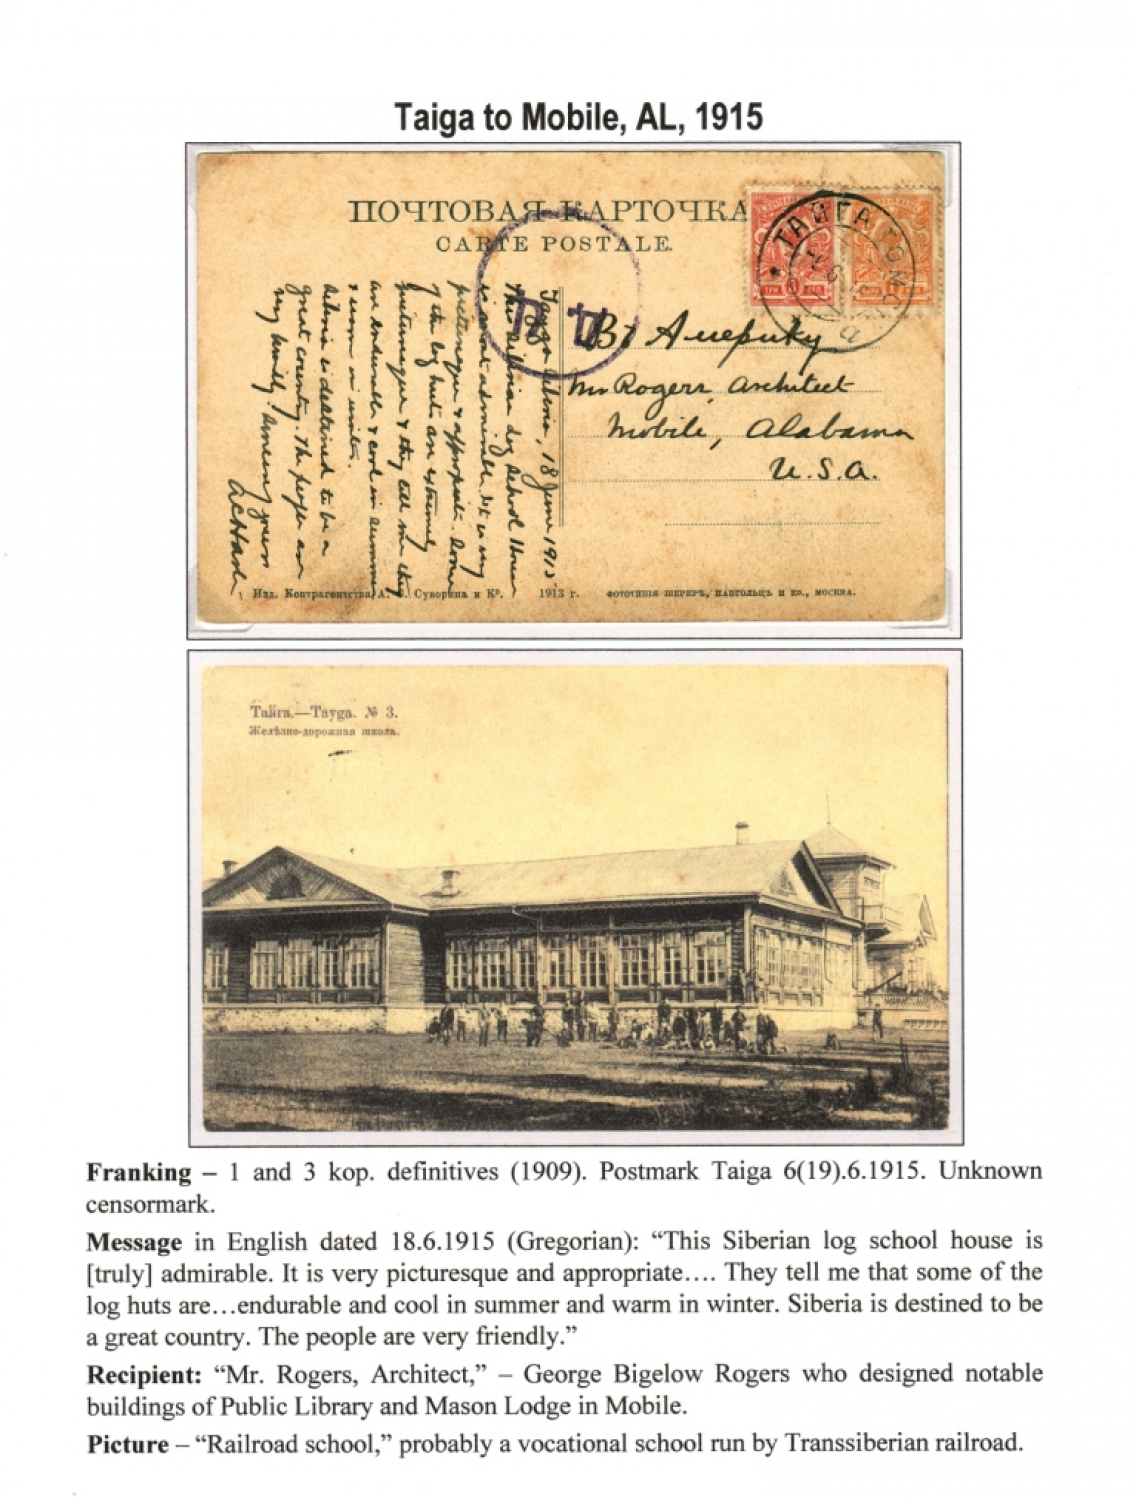 Taiga to Mobile, AL, 1915
ПОЧТОВАЯ КАРТОЧКА
CARTE POSTALE.
ТАЙГА ТОМС
а
ТРИ КОП
Въ Америку
Mr Rogers, Architect
Mobile, Alabama
U.S.A.
Tayga Siberia, 18 June 1915
This Siberian log School House
is most admirable. It is very
picturesque & appropriate. Some
of the log huts are extremely
picturesque & they tell me they
are endurable & cool in summer
& warm in winter.
Siberia is destined to be a
great country. The people are
very friendly.
Изд. Контрагентства А. С. Суворина и Ко. 1913 г. ФОТОТИПІЯ ШЕРЕРЪ, НАБГОЛЬЦЪ И КО., МОСКВА.
Тайга.—Tayga. № 3.
Желѣзно-дорожная школа.
Franking – 1 and 3 kop. definitives (1909). Postmark Taiga 6(19).6.1915. Unknown
censormark.
Message in English dated 18.6.1915 (Gregorian): “This Siberian log school house is
[truly] admirable. It is very picturesque and appropriate…. They tell me that some of the
log huts are…endurable and cool in summer and warm in winter. Siberia is destined to be
a great country. The people are very friendly.”
Recipient: “Mr. Rogers, Architect,” – George Bigelow Rogers who designed notable
buildings of Public Library and Mason Lodge in Mobile.
Picture – “Railroad school,” probably a vocational school run by Transsiberian railroad.